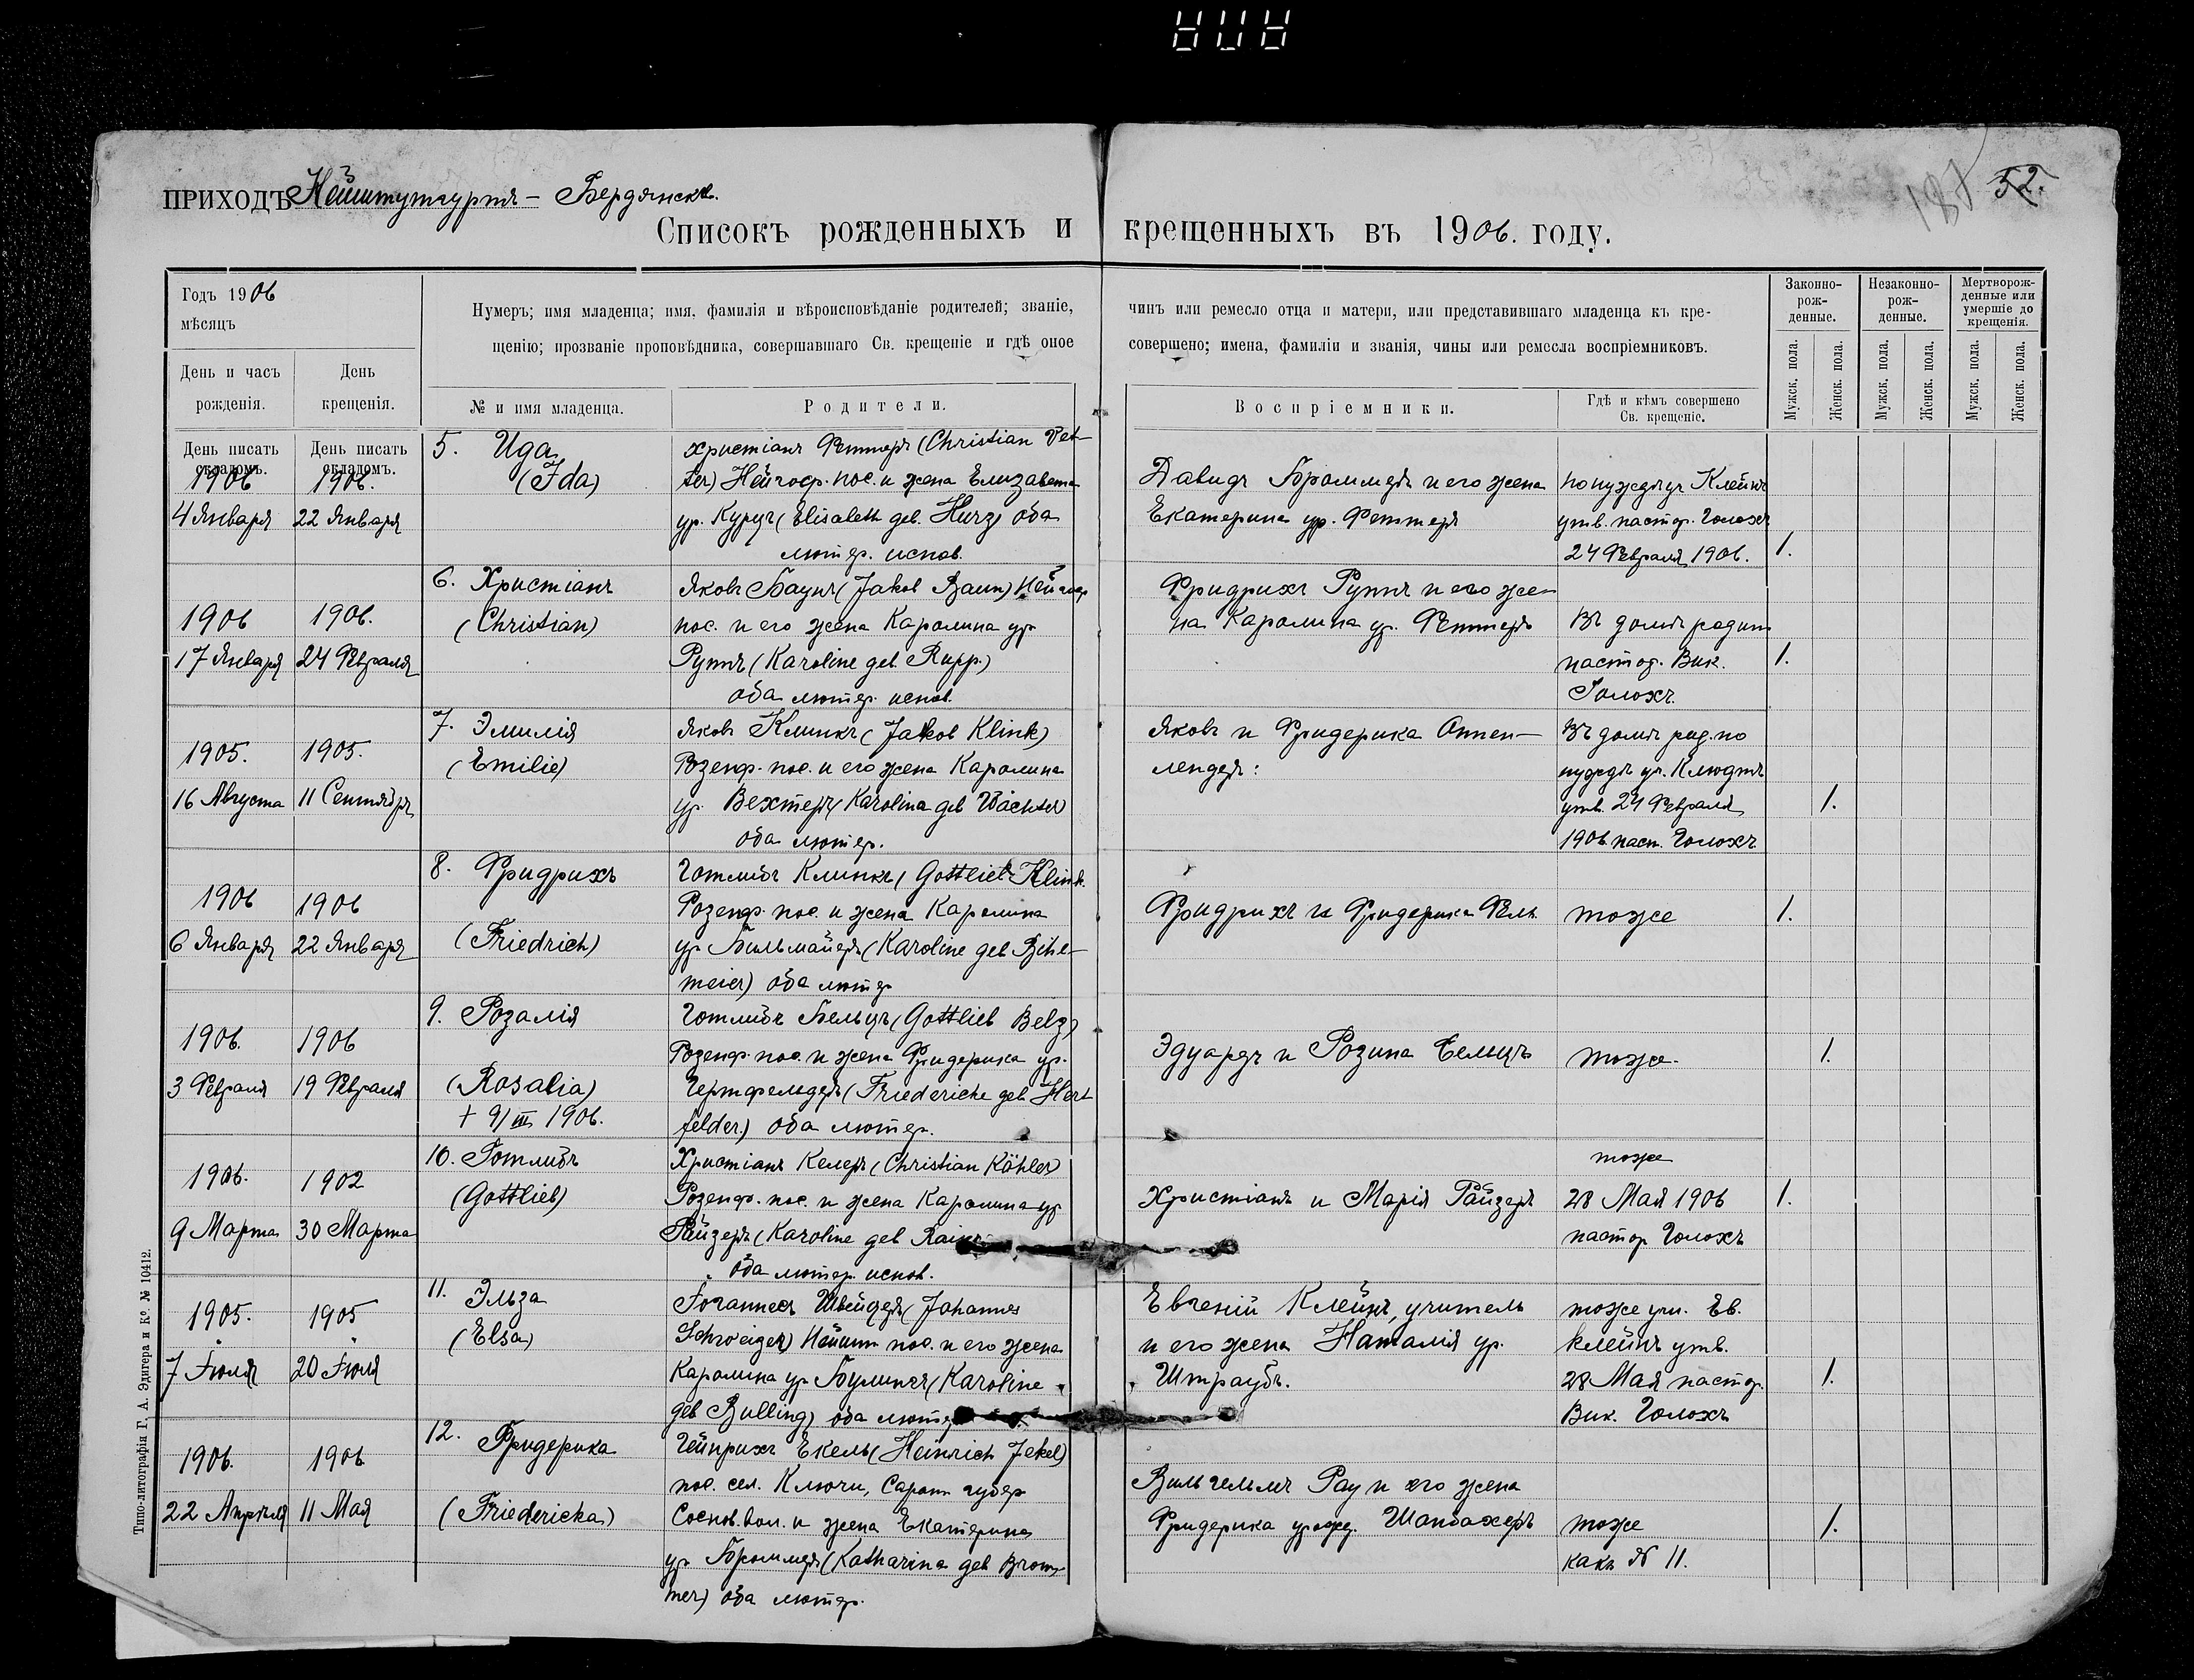 ПРИХОДЪ Нейштутгартъ – Бердянскъ.
187 52.
Списокъ рожденныхъ и крещенныхъ въ 1906. году.
Годъ 1906
мѣсяцъ
День и часъ рожденія.
День крещенія.
Нумеръ; имя младенца; имя, фамилія и вѣроисповѣданіе родителей; званіе, чинъ или ремесло отца и матери, или представившаго младенца къ кре-
щенію; прозваніе проповѣдника, совершавшаго Св. крещеніе и гдѣ оное совершено; имена, фамиліи и званія, чины или ремесла воспріемниковъ.
№ и имя младенца.
Родители.
Воспріемники.
Гдѣ и кѣмъ совершено Св. крещеніе.
Законно-рож-денные.
Незаконно-рож-денные.
Мертворож-денные или умершіе до крещенія.
Мужск. пола.
Женск. пола.
Мужск. пола.
Женск. пола.
Мужск. пола.
Женск. пола.
День писать складомъ.
День писать складомъ.
1906
4 Января
1906.
22 Января
5. Ида
(Ida)
Христіанъ Феттеръ (Christian Vet-
ter) Нейгоф. пос. и жена Елизавета
ур. Курцъ (Elisabeth geb. Kurz) оба
лютер. испов.
Давидъ Броммеръ и его жена
Екатерина ур. Феттеръ
по нуждѣ уч. Клейнъ
утв. пастор. Голохъ
24 Февраля 1906.
1.
1906
17 Января
1906.
24 Февраля
6. Христіанъ
(Christian)
Яковъ Баунъ (Jakob Baun) Нейгоф
пос. и его жена Каролина ур.
Руппъ (Karoline geb Rupp.)
оба лютер. испов.
Фридрихъ Руппъ и его же-
на Каролина ур. Феттеръ
Въ домѣ родит
пастор. Вик.
Голохъ.
1.
1905.
16 Августа
1905.
11 Сентября
7. Эмилія
(Emilie)
Яковъ Клинкъ (Jakob Klink)
Розенф. пос. и его жена Каролина
ур. Вехтеръ (Karolina geb Wächter)
оба лютер.
Яковъ и Фридерика Оппен-
лендеръ:
Въ домѣ род. по
нуждѣ уч. Клюдтъ
утв. 24 Февраля
1906 паст. Голохъ
1.
1906
6 Января
1906
22 Января
8. Фридрихъ
(Friedrich)
Готлибъ Клинкъ (Gottlieb Klink.
Розенф. пос. и жена Каролина
ур. Бильмайеръ (Karoline geb Bihl-
meier) оба лютер
Фридрихъ и Фридерика Фель
тоже
1.
1906.
3 Февраля
1906
19 Февраля
9. Розалія
(Rosalia)
+ 9/III 1906.
Готлибъ Бельцъ (Gottlieb Belz)
Розенф. пос. и жена Фридерика ур.
Гертфельдеръ (Friedericke geb Hert
felder) оба лютер.
Эдуардъ и Розина Бельцъ
тоже.
1.
1906.
9 Марта
1902
30 Марта
10. Готлибъ
(Gottlieb)
Христіанъ Келеръ (Christian Köhler)
Розенф. пос. и жена Каролина ур
Райзеръ (Karoline geb
оба лютер. испов.
Христіанъ и Марія Райзеръ
тоже
28 Мая 1906
пастор Голохъ
1.
1905.
7 Іюля
1905
20 Іюля
11. Эльза
(Elsa)
Іоганнесъ Швейцеръ (Johannes
Schweizer) Нейшт пос. и его жена
Каролина ур Булингъ (Karoline
geb Bulling) оба лютер
Евгеній Клейнъ, учитель
и его жена Наталія ур.
Штраубъ.
тоже уч. Ев.
Клейнъ утв.
28 Мая пастор.
Вик. Голохъ
1.
1906.
22 Апрѣля
1906
11 Мая
12. Фридерика
(Friedericka)
Гейнрихъ Екель (Heinrich Jekel)
пос. сел. Ключи, Сарат губер
Соснов. вол. и жена Екатерина
ур Броммеръ (Katharina geb Brom-
mer) оба лютер.
Вильгельмъ Рау и его жена
Фридерика урожд. Шанбахеръ
тоже
какъ № 11.
1.
Типо-литографія Г. А. Эдигера и Ко. № 10412.